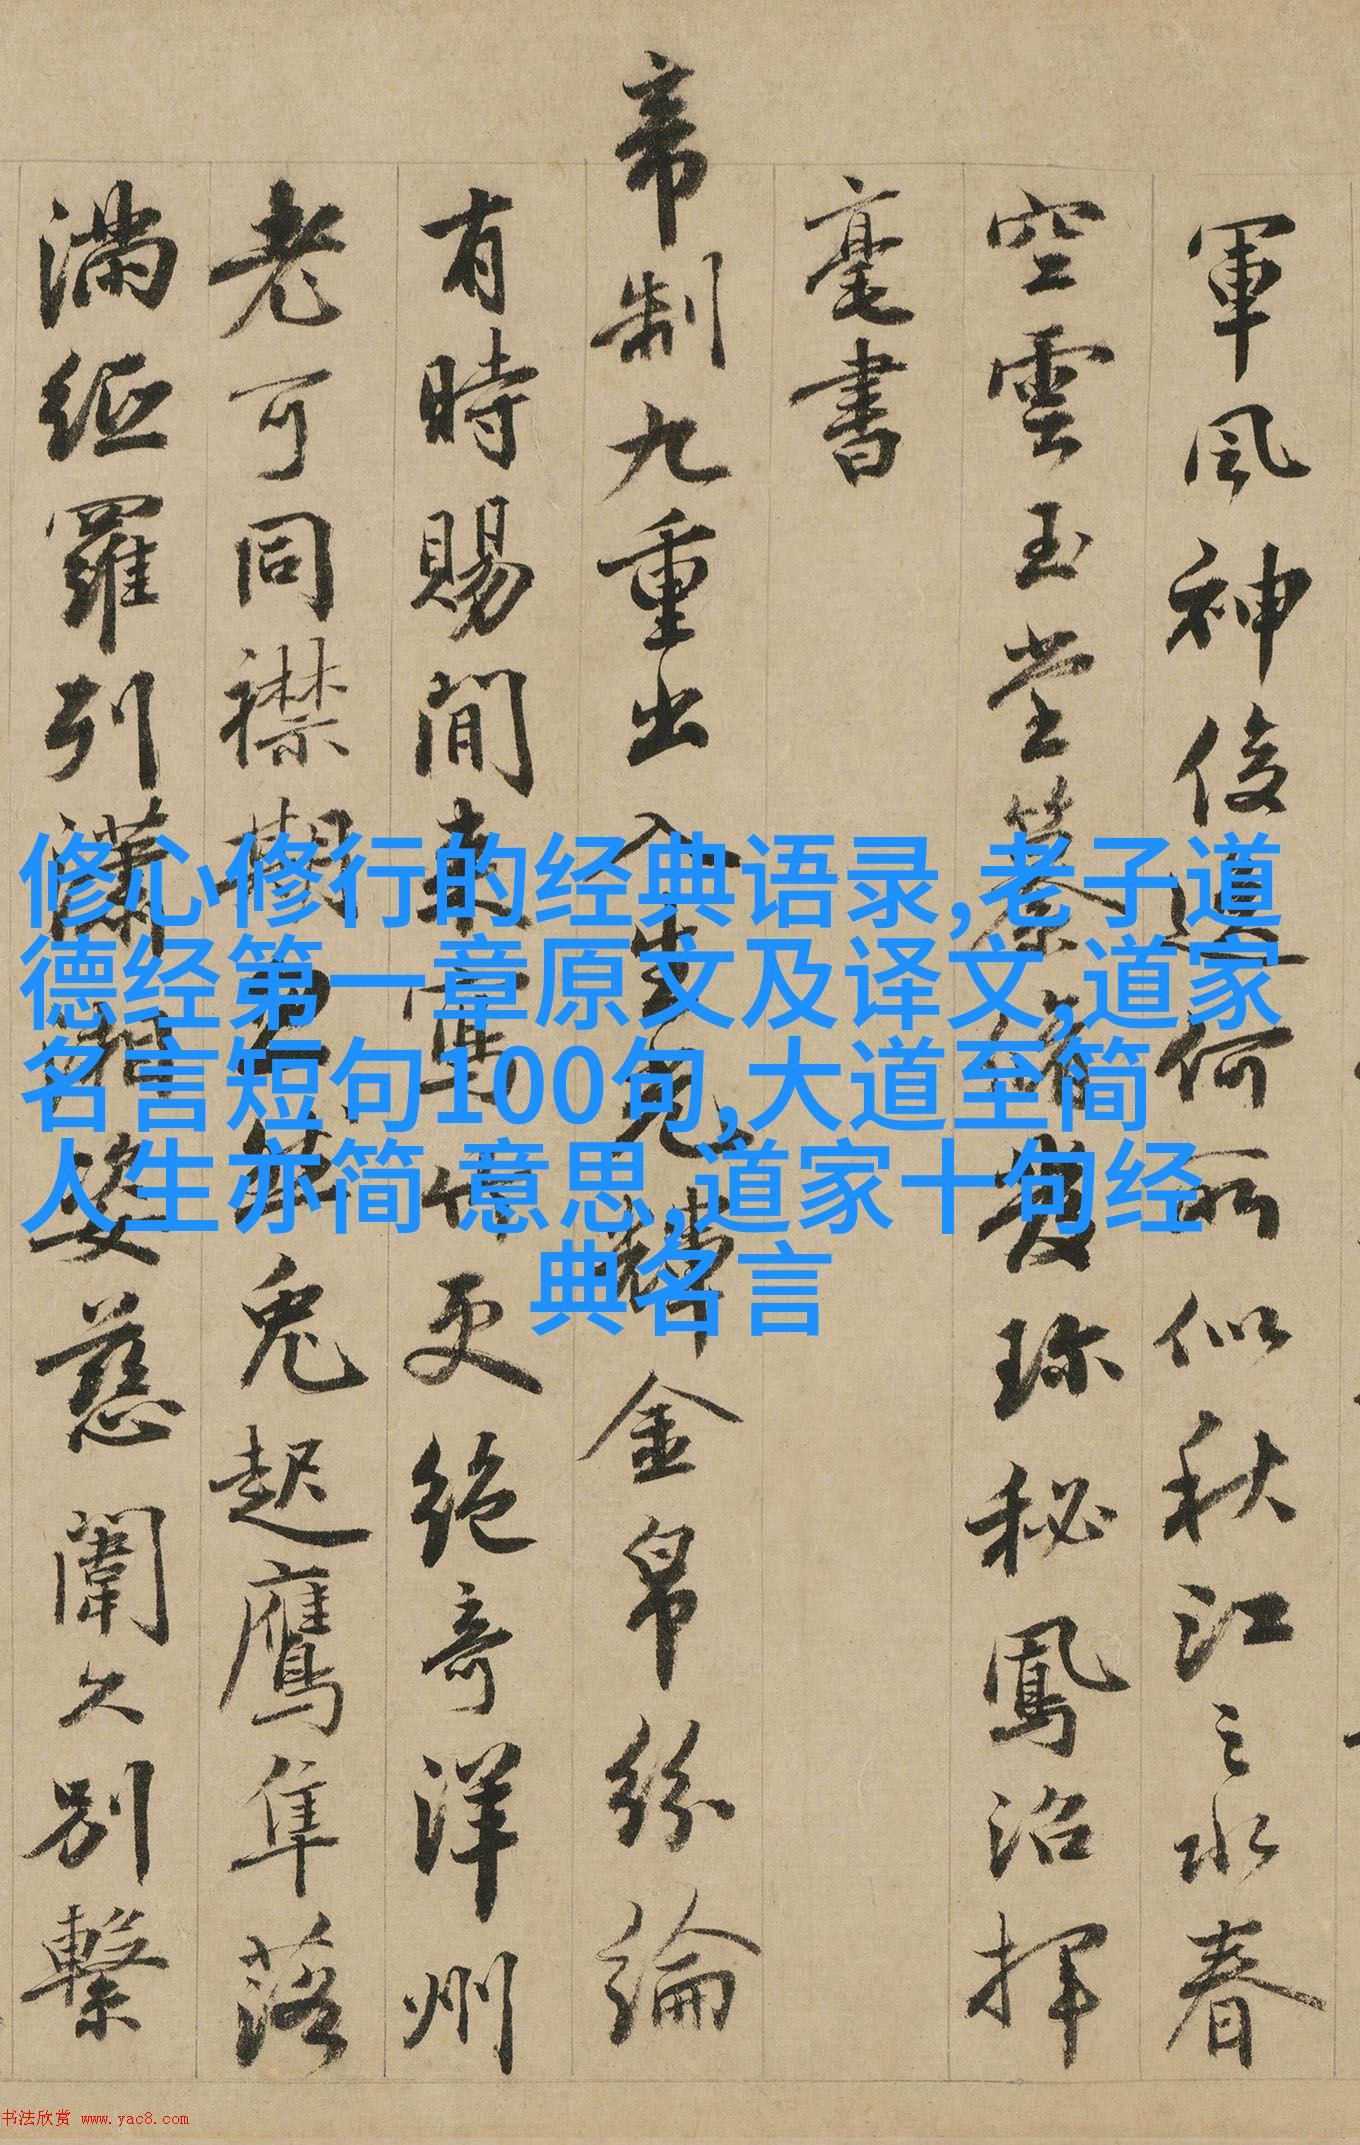 軍風神俊邁何所似秋江之水春
空雲玉堂篆籀發珎秘鳳沼揮
毫書
帝制九重出入生光輝金帛紛綸
有時賜閒東軍作更絶奇洋州
老可同襟期
兔起鷹隼落
满經羅列瀟湘姿慈闈久別繫
修心修行的经典语录,老子道
德经第一章原文及译文,道家
名言短句100句,大道至简
人生亦简 意思,道家十句经
典名言
书法欣赏 www.yac8.com